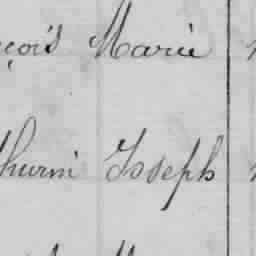 çois Marie
thurin Joseph